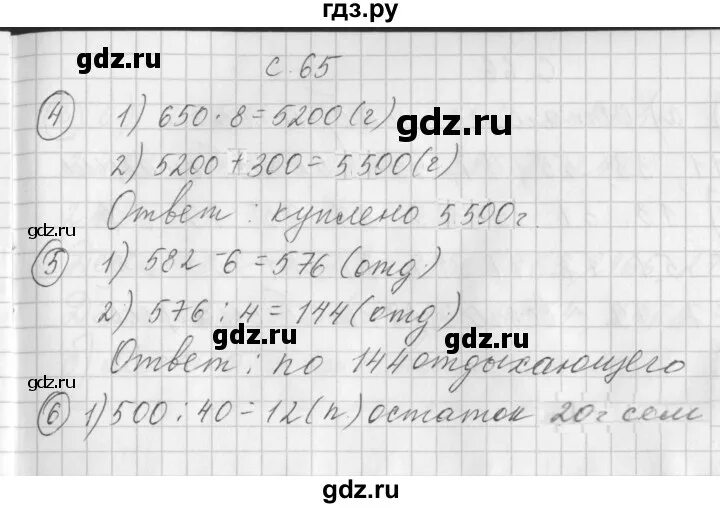 гдз.ру
gdz.ru
с. 65
gdz.ru
4 1) 650 · 8 = 5200 (г)
gdz.ru
2) 5200 + 300 = 5500 (г)
Ответ: куплено 5500 г.
gdz.ru
gdz.ru
5 1) 582 - 6 = 576 (отд)
2) 576 : 4 = 144 (отд)
gdz.ru
gdz.ru
Ответ: по 144 отдыхающего
gdz.ru
6 1) 500 : 40 = 12 (п) остаток 20 г
gdz.ru
gdz.ru